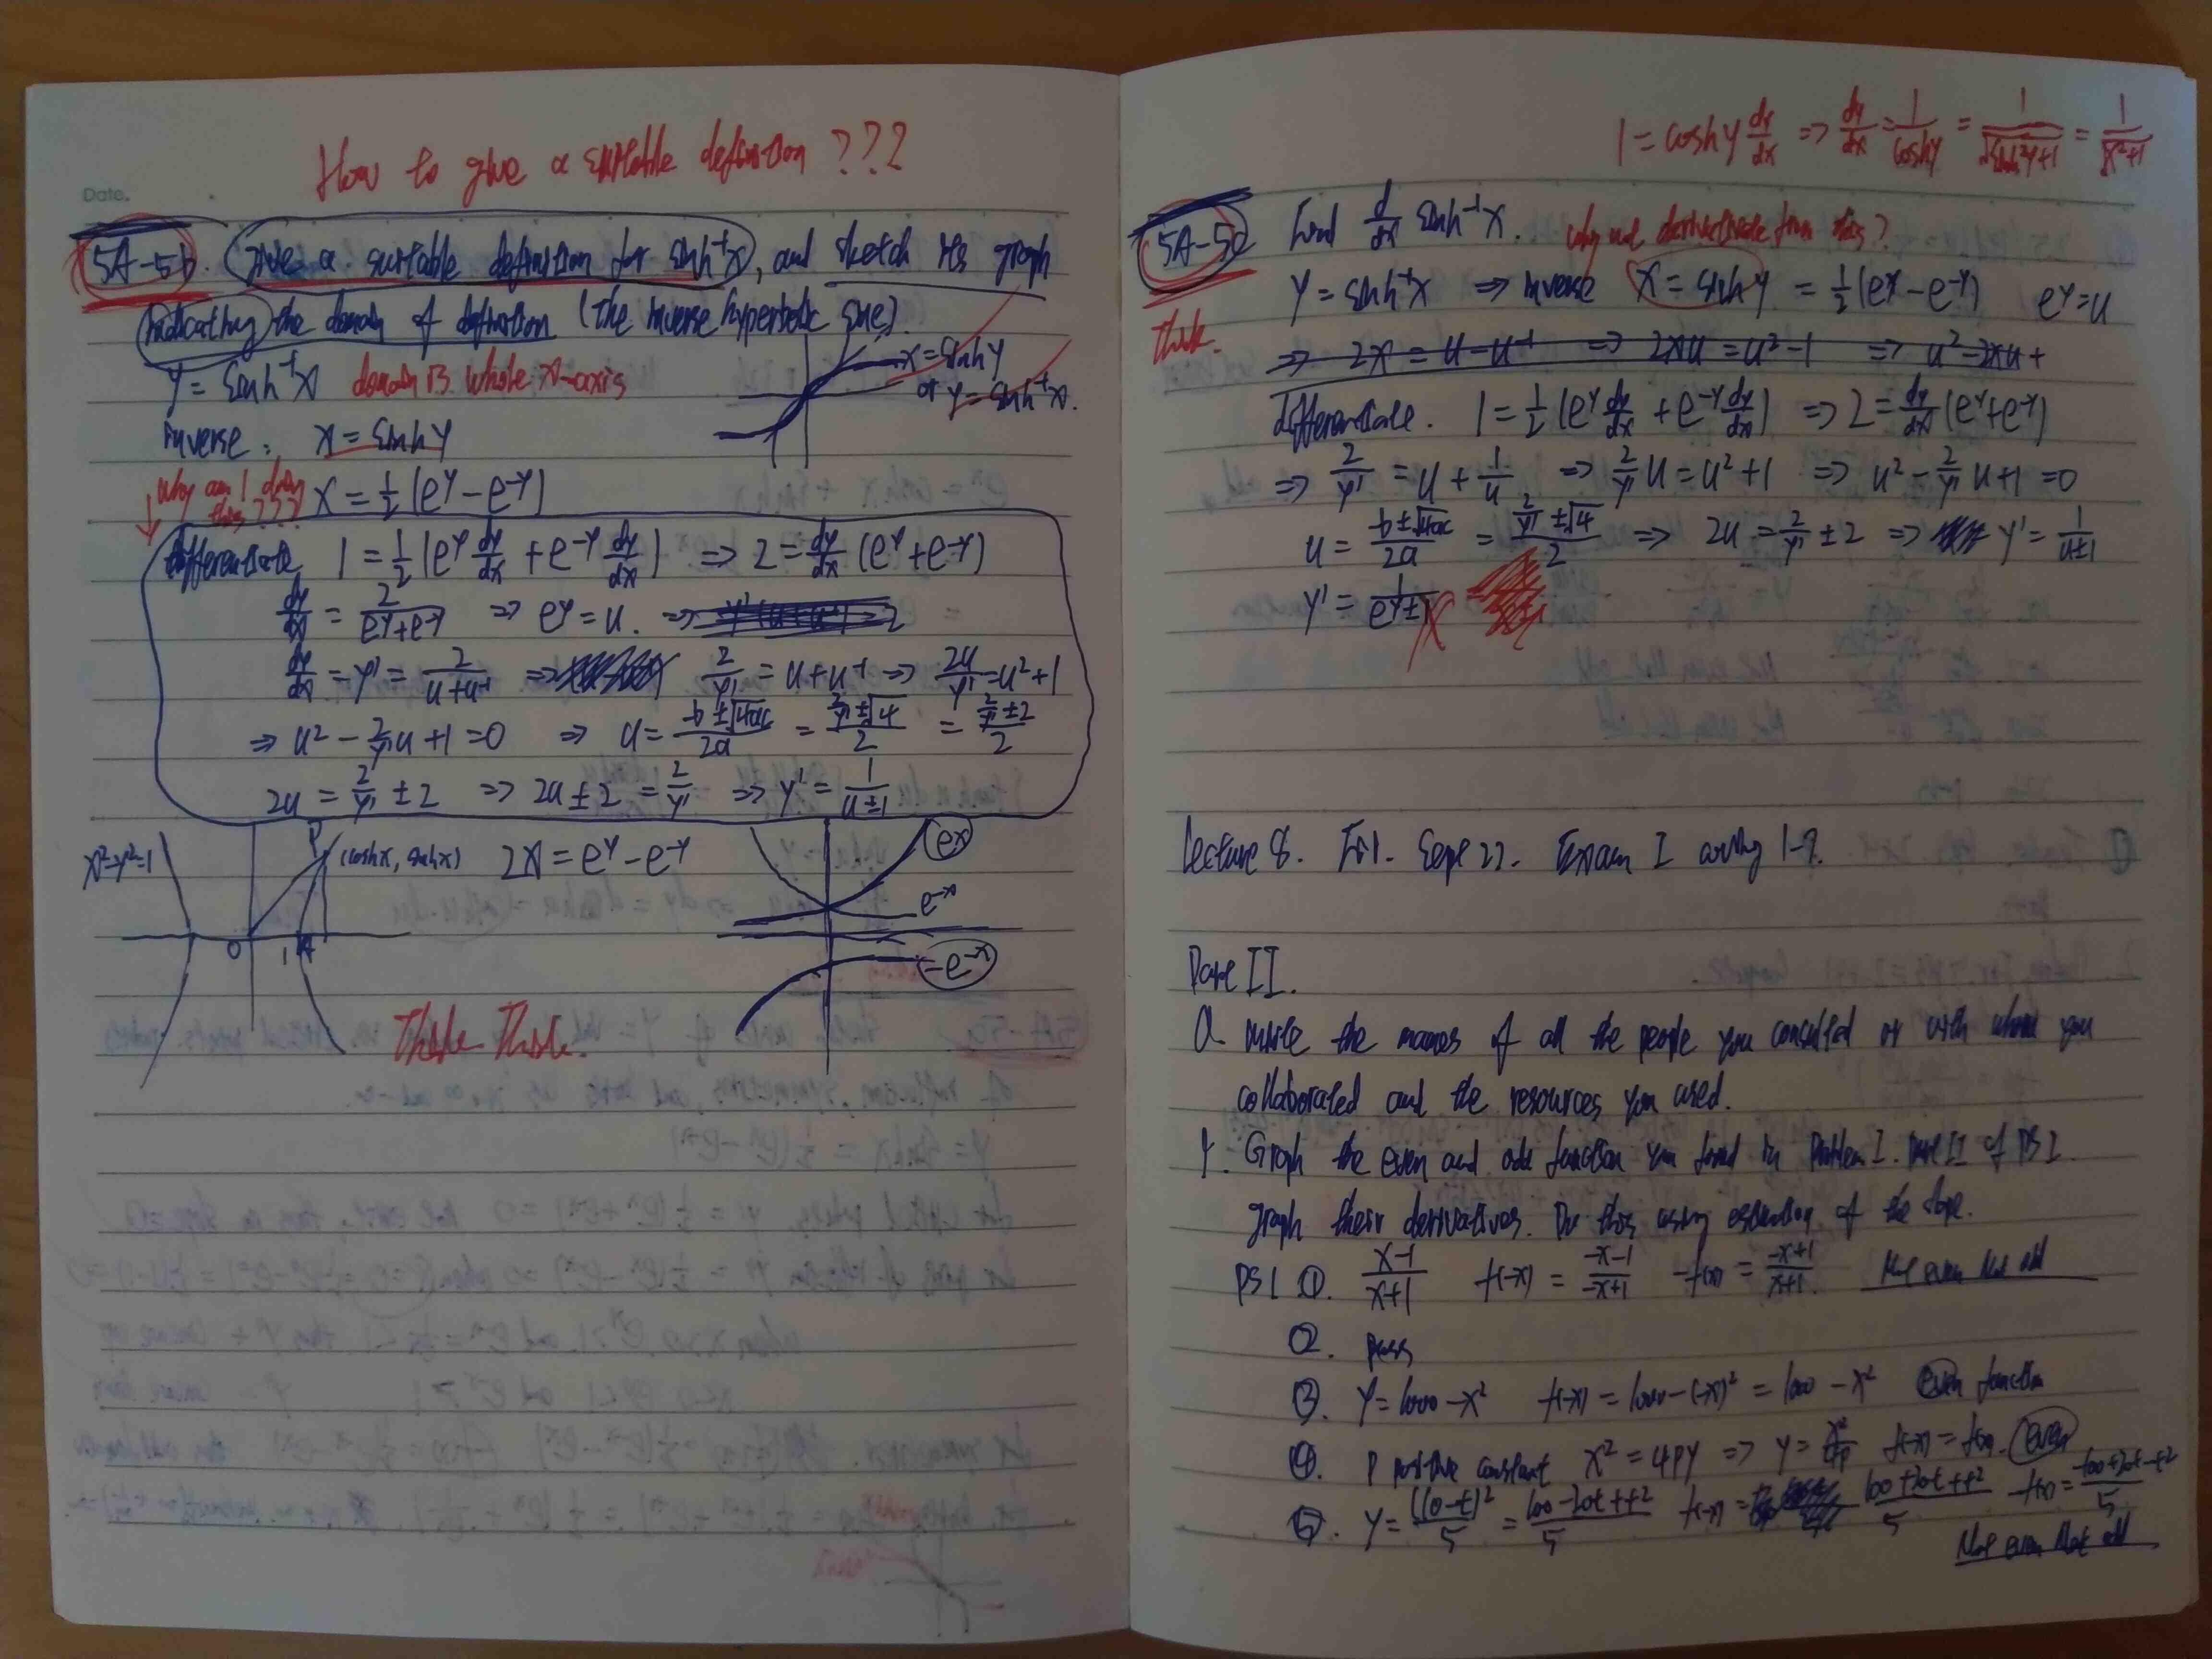 How to give a suitable definition ???
Date.
5A-5b. Give a suitable definition for sinh⁻¹x, and sketch its graph
indicating the domain of definition (The inverse hyperbolic sine).
y = sinh⁻¹x domain is whole x-axis
x = sinh y
or y = sinh⁻¹x.
inverse: x = sinh y
why am I doing this ???
x = ½(e^y - e^-y)
differentiate 1 = ½(e^y dy/dx + e^-y dy/dx) ⇒ 2 = dy/dx (e^y + e^-y)
dy/dx = 2/(e^y + e^-y) ⇒ e^y = u. ⇒
dy/dx = y' = 2/(u + u⁻¹) ⇒ 2/y' = u + u⁻¹ ⇒ 2u/y' = u² + 1
⇒ u² - 2/y' u + 1 = 0 ⇒ u = (-b ± √4ac)/2a = (2/y' ± √4)/2 = (2/y' ± 2)/2
2u = 2/y' ± 2 ⇒ 2u ± 2 = 2/y' ⇒ y' = 1/(u ± 1)
x² - y² = 1
P
(cosh x, sinh x)
0 1 A
2x = e^y - e^-y
e^x
e^-x
-e^-x
Think Think.
1 = cosh y dy/dx ⇒ dy/dx = 1/cosh y = 1/√(sinh²y + 1) = 1/√(x² + 1)
5A-5c Find d/dx sinh⁻¹x. why not derivative from this?
y = sinh⁻¹x ⇒ inverse x = sinh y = ½(e^y - e^-y) e^y = u
Think.
⇒ 2x = u - u⁻¹ ⇒ 2xu = u² - 1 ⇒ u² - 2xu +
Differentiate. 1 = ½(e^y dy/dx + e^-y dy/dx) ⇒ 2 = dy/dx (e^y + e^-y)
⇒ 2/y' = u + 1/u ⇒ 2/y' u = u² + 1 ⇒ u² - 2/y' u + 1 = 0
u = (b ± √4ac)/2a = (2/y' ± √4)/2 ⇒ 2u = 2/y' ± 2 ⇒ y' = 1/(u ± 1)
y' = 1/(e^y ± 1) X
Lecture 8. Fri. Sept 22. Exam I covering 1-7.
Part II.
0. Write the names of all the people you consulted or with whom you
collaborated and the resources you used.
1. Graph the even and odd function you found in Problem I. Part II of PS I.
graph their derivatives. Do this using estimation of the slope.
PS1 ①. (x-1)/(x+1) f(-x) = (-x-1)/(-x+1) -f(x) = (-x+1)/(x+1). Not even Not odd
②. pass
③. y = 1000 - x² f(-x) = 1000 - (-x)² = 1000 - x² even function
④. P positive constant x² = 4py ⇒ y = x²/4p f(-x) = f(x). even
⑤. y = (10-t)²/5 = (100 - 20t + t²)/5 f(-x) = (100 + 20t + t²)/5 -f(x) = (-100 + 20t - t²)/5
Not even Not odd.